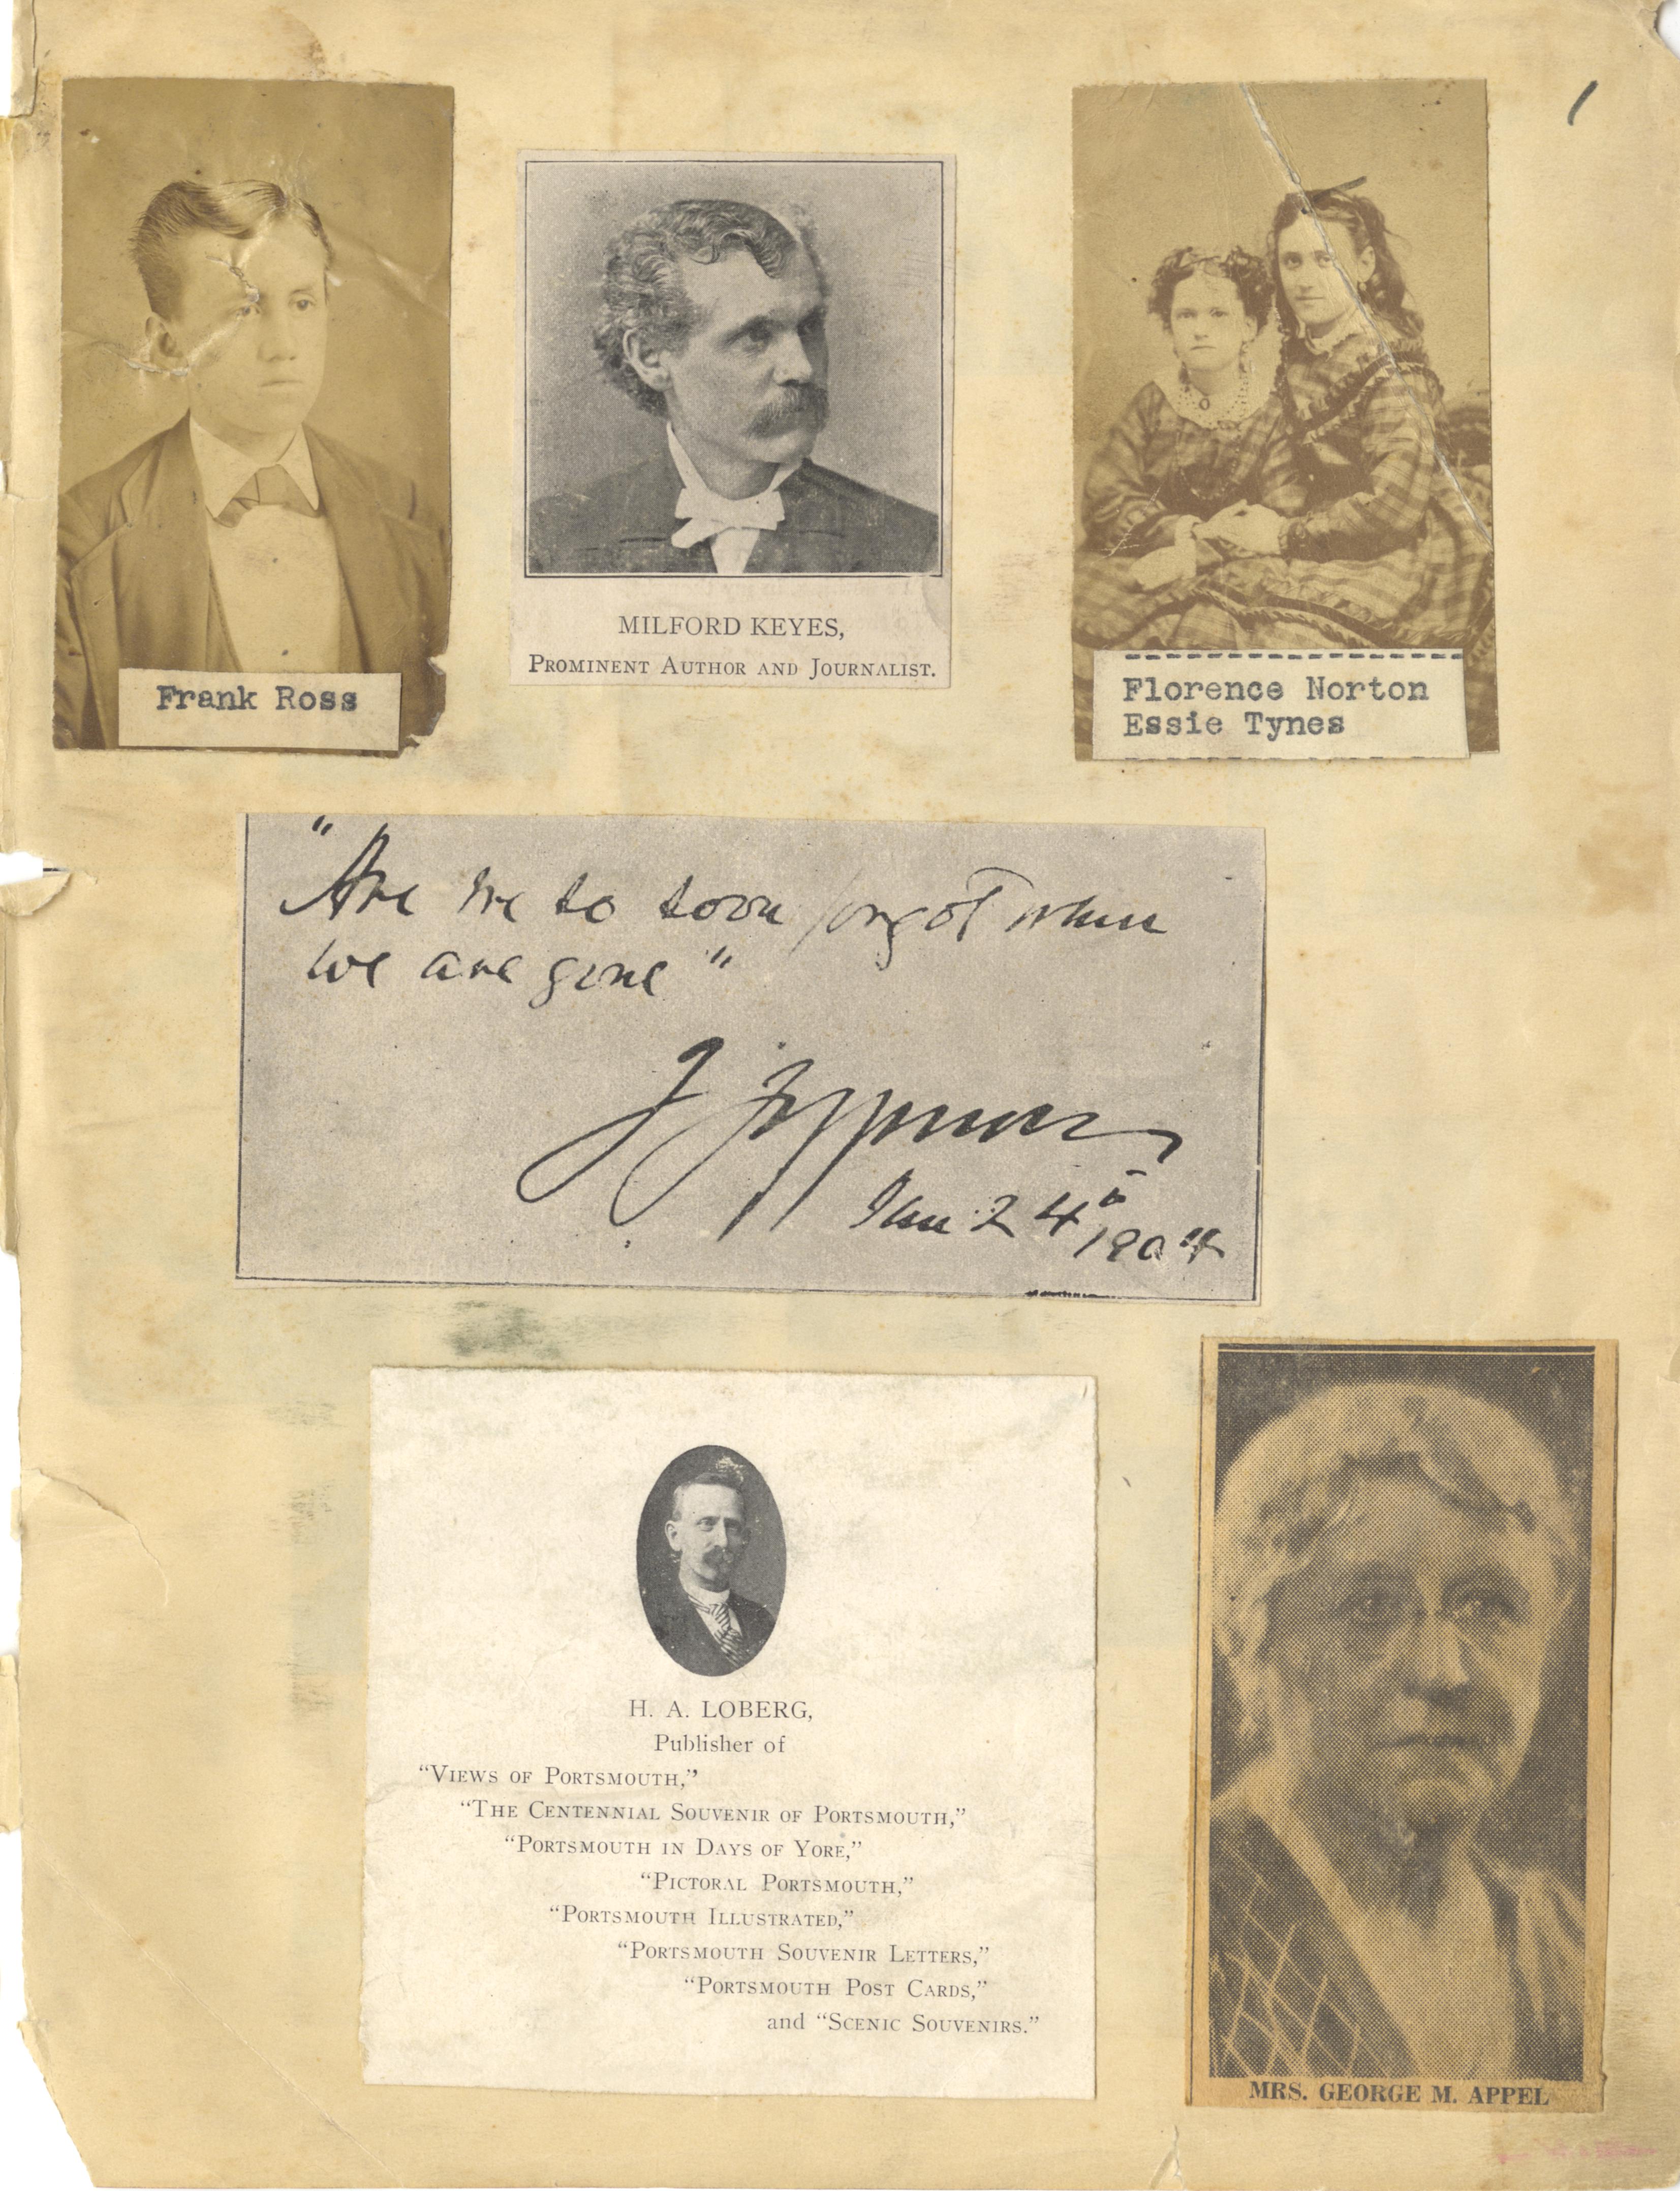 1
Frank Ross
MILFORD KEYES,
PROMINENT AUTHOR AND JOURNALIST.
Florence Norton
Essie Tynes
"Are we so soon forgot when
we are gone"
J Jefferson
Jan 24th 1904
H. A. LOBERG,
Publisher of
"VIEWS OF PORTSMOUTH,"
"THE CENTENNIAL SOUVENIR OF PORTSMOUTH,"
"PORTSMOUTH IN DAYS OF YORE,"
"PICTORAL PORTSMOUTH,"
"PORTSMOUTH ILLUSTRATED,"
"PORTSMOUTH SOUVENIR LETTERS,"
"PORTSMOUTH POST CARDS,"
and "SCENIC SOUVENIRS."
MRS. GEORGE M. APPEL